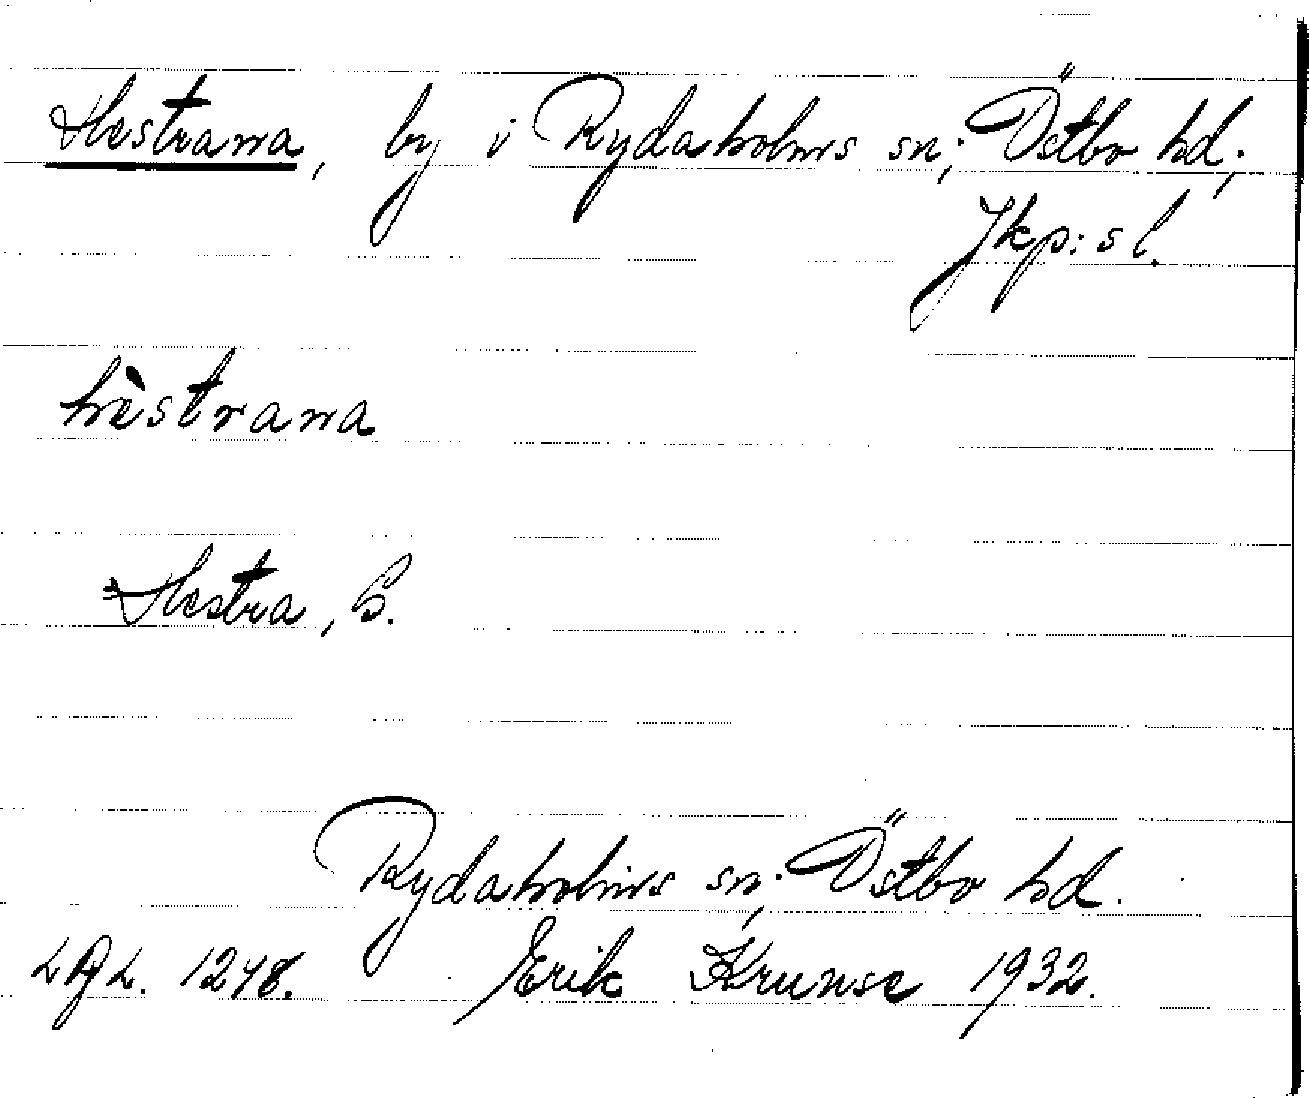 Hestrana, by i Rydaholms sn; Östbo hd;
Jkp:s l.
hèstrana
Hestra, S.
Rydaholms sn; Östbo hd.
1248. Erik Krunse 1932.